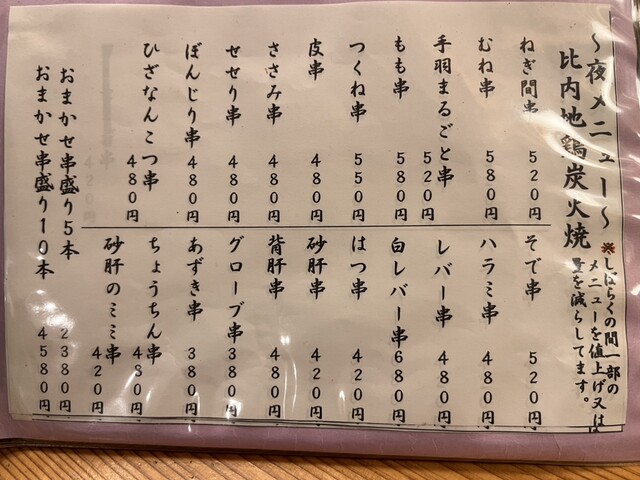 ～夜メニュー～
比内地鶏炭火焼
※しばらくの間一部の
メニューを値上げ又は
量を減らしてます。
ねぎ間串 520円
むね串 580円
手羽まるごと串 520円
もも串 580円
つくね串 550円
皮串 480円
ささみ串 480円
せせり串 480円
ぼんじり串 480円
ひざなんこつ串 480円
そで串 520円
ハラミ串 480円
レバー串 480円
白レバー串 680円
はつ串 420円
砂肝串 420円
背肝串 480円
グローブ串 380円
あずき串 380円
ちょうちん串 480円
砂肝のミミ串 420円
おまかせ串盛り5本 2380円
おまかせ串盛り10本 4580円